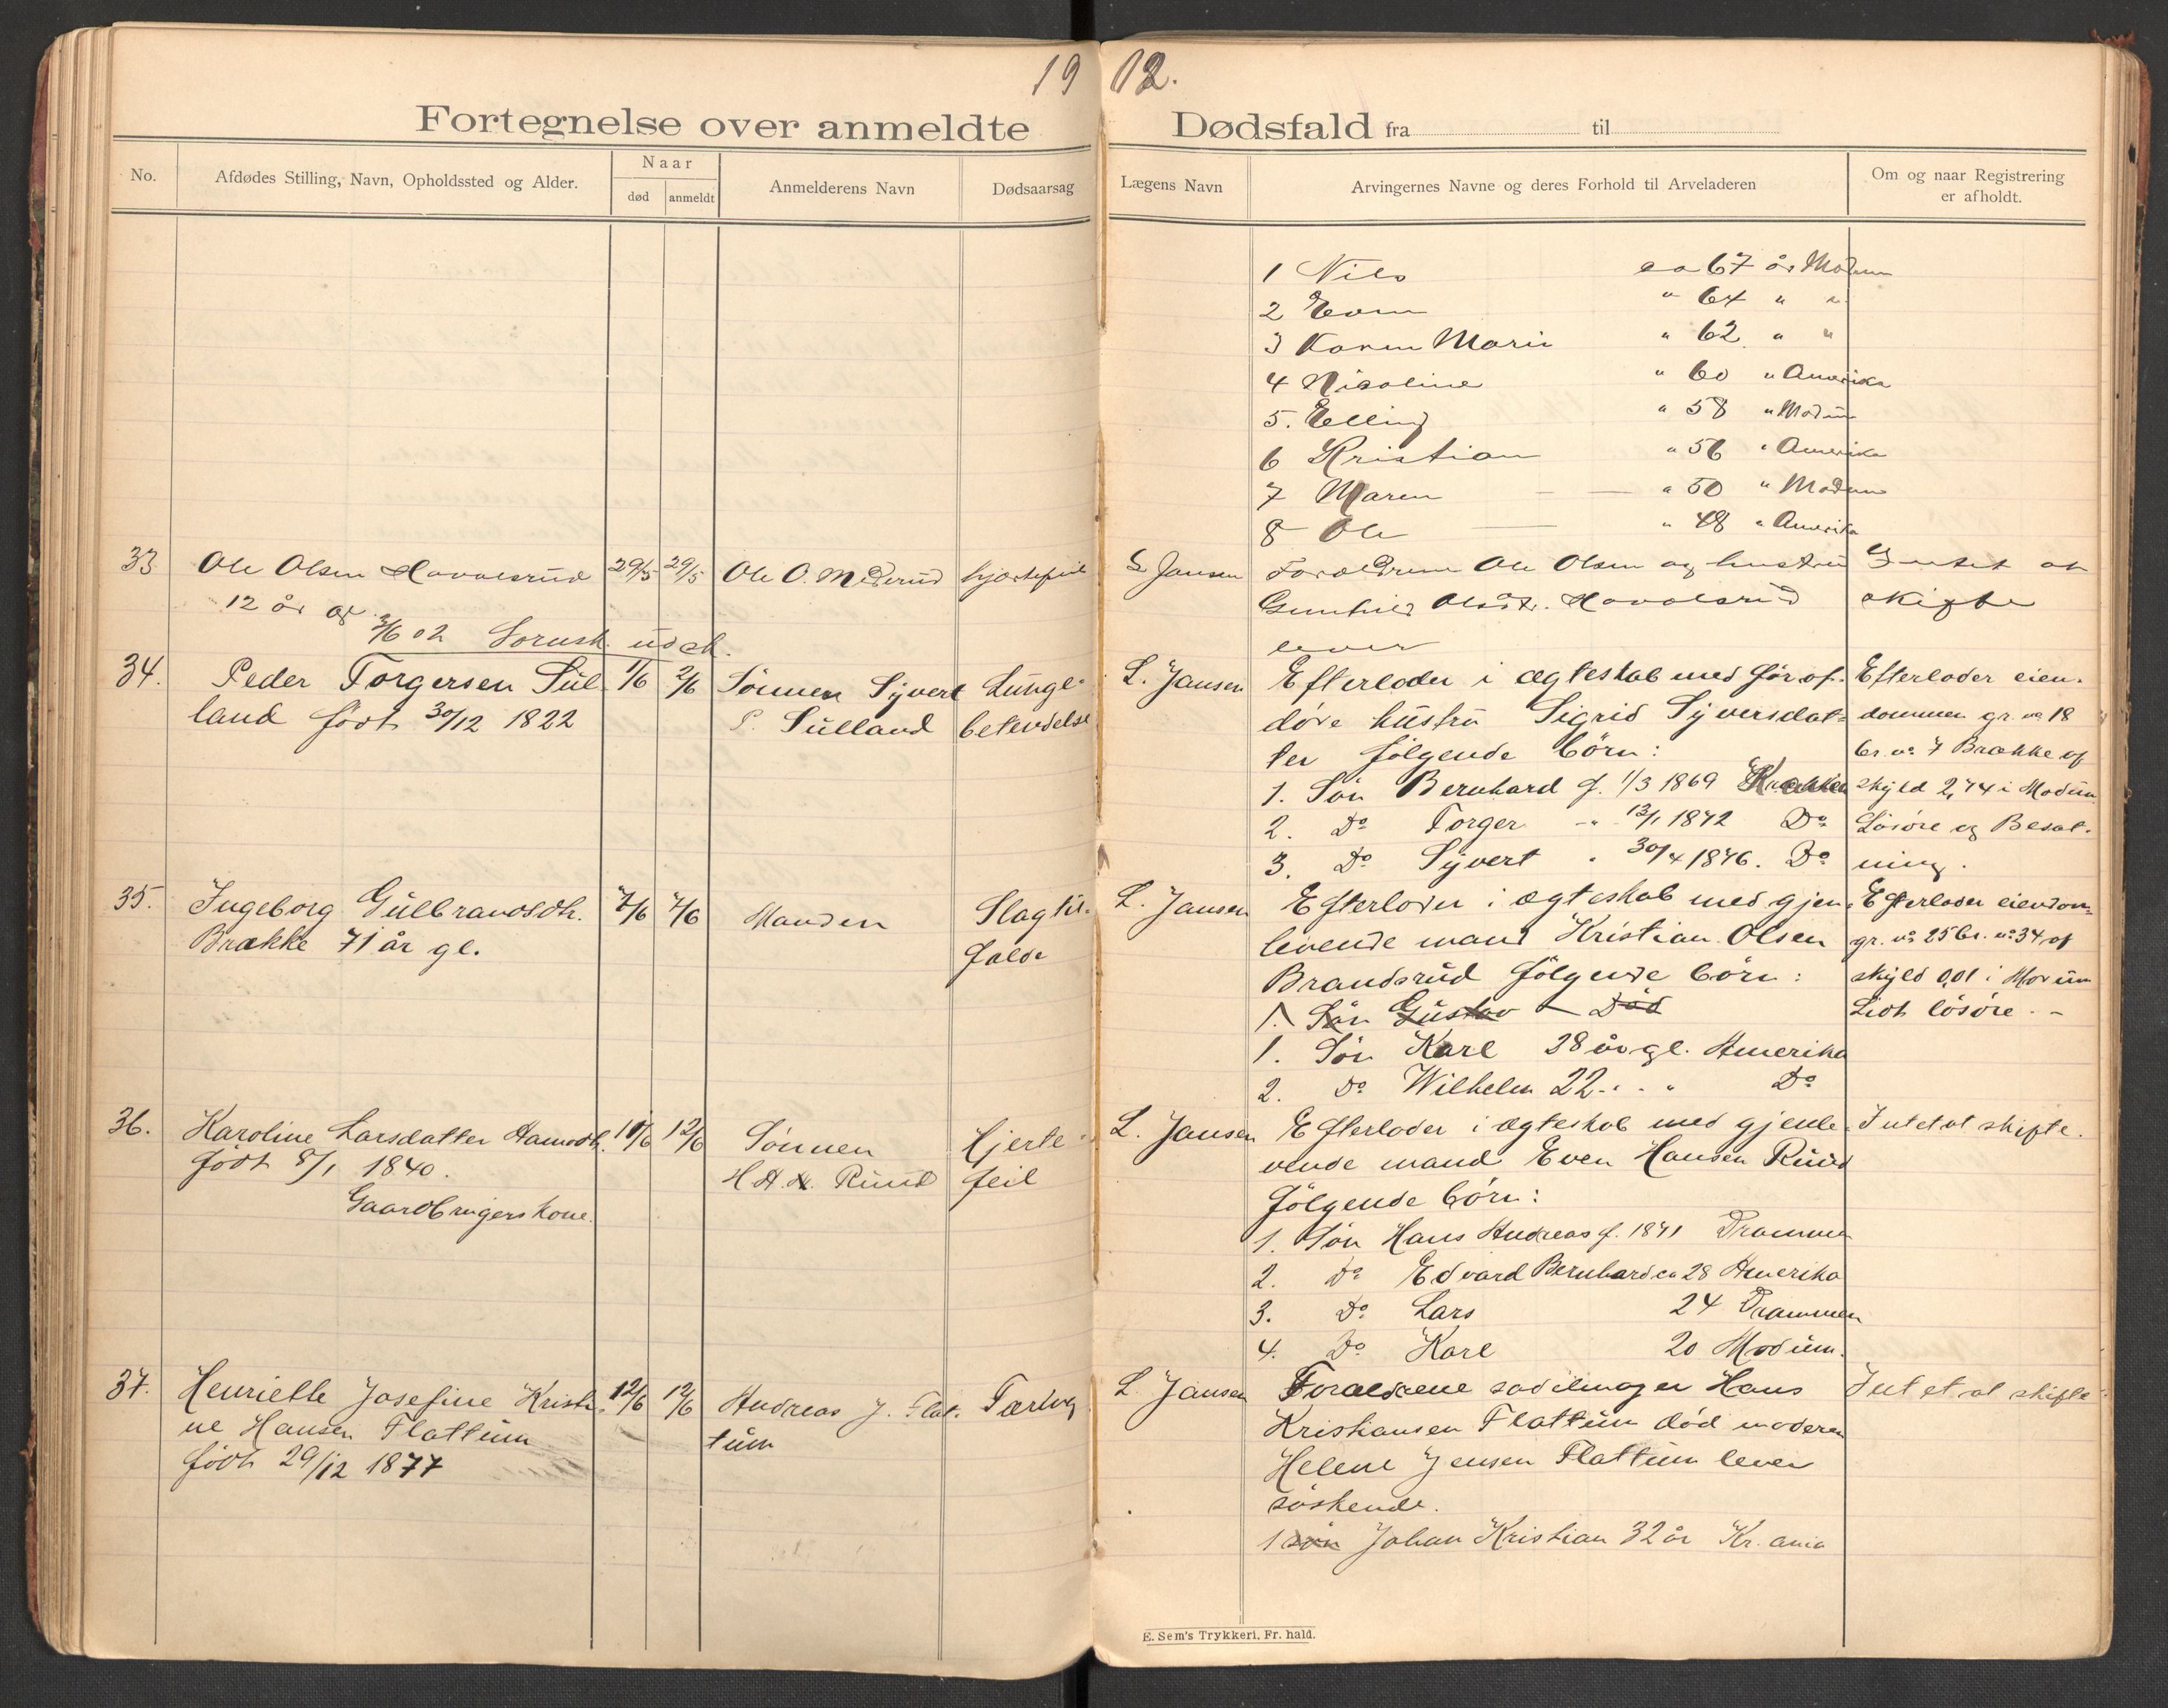 19 02.
Fortegnelse over anmeldte Dødsfald fra til
No.
Afdødes Stilling, Navn, Opholdssted og Alder.
Naar
død
anmeldt
Anmelderens Navn
Dødsaarsag
Lægens Navn
Arvingernes Navne og deres Forhold til Arveladeren
Om og naar Registrering
er afholdt.
1 Nils ca 67 år Modum
2 Even " 64 " "
3 Karen Marie " 62 " "
4 Nicoline " 60 " Amerika
5. Elling " 58 " Modum
6 Kristian " 56 " Amerika
7 Maren " 50 " Modum
8 Ole " 48 " Amerika
33 Ole Olsen 29/5 29/5 Ole O. hjertefeil
12 år gl.
3/6 02 udst.
L Jansen Forældrene Ole Olsen og hustru
Gunhild Olsdt.
lever
Intet at
skifte
34. Peder Torgersen Sul- 1/6 2/6 Sönnen Syvert Lunge-
land født 30/12 1822 P. Sulland betendelse
L. Jansen Efterlader i ægteskab med før af-
døde hustru Sigrid Syversdat-
ter følgende börn:
1. Sön Bernhard f. 1/3 1869
2. Do Torger " 13/1 1872 Do
3. Do Syvert " 30/4 1876. Do
Efterlader eien-
dommen gr. no 18
br. no 7 Brække af
skyld 2,74 i Modum
Lösöre og Besæt-
ning.
35. Ingeborg Gulbrandsdtr. 7/6 7/6 Manden Slagtil-
Brække 71 år gl. fælde
L. Jansen Efterlader i ægteskab med gjen-
levende mand Kristian Olsen
Brandsrud følgende börn:
1. Sön Gustav – Död
1. Sön Karl 28 år gl. Amerika
2. Do Wilhelm 22 " " Do
Efterlader eiendom
gr. no 25 br. no 34 af
skyld 0,01 i Modum
Lidt lösöre. -
36. Karoline Larsdatter 12/6 Sönnen Hjerte-
født 8/1 1840. H. A. Ruud feil
Gaardbrugerskone.
L. Jansen Efterlader i ægteskab med gjenle-
vende mand Even Hansen Ruud
følgende börn:
1. Sön Hans Andreas f. 1871 Drammen
2. Do Edvard Bernhard ca 28 Amerika
3. Do Lars 24 Drammen
4. Do Karl 20 Modum.
Intet at skifte.
37. Henriette Josefine Kristi- 12/6 12/6 Andreas J. Flat- Tæring
ne Hansen Flattum tum
født 29/12 1877
L. Jansen Forældrene sadelmager Hans
Kristiansen Flattum död moderen
Helene Jensen Flattum lever
söskende.
1 sön Johan Kristian 32 år Kr.ania
Intet at skifte
E. Sem's Trykkeri, Fr. hald.